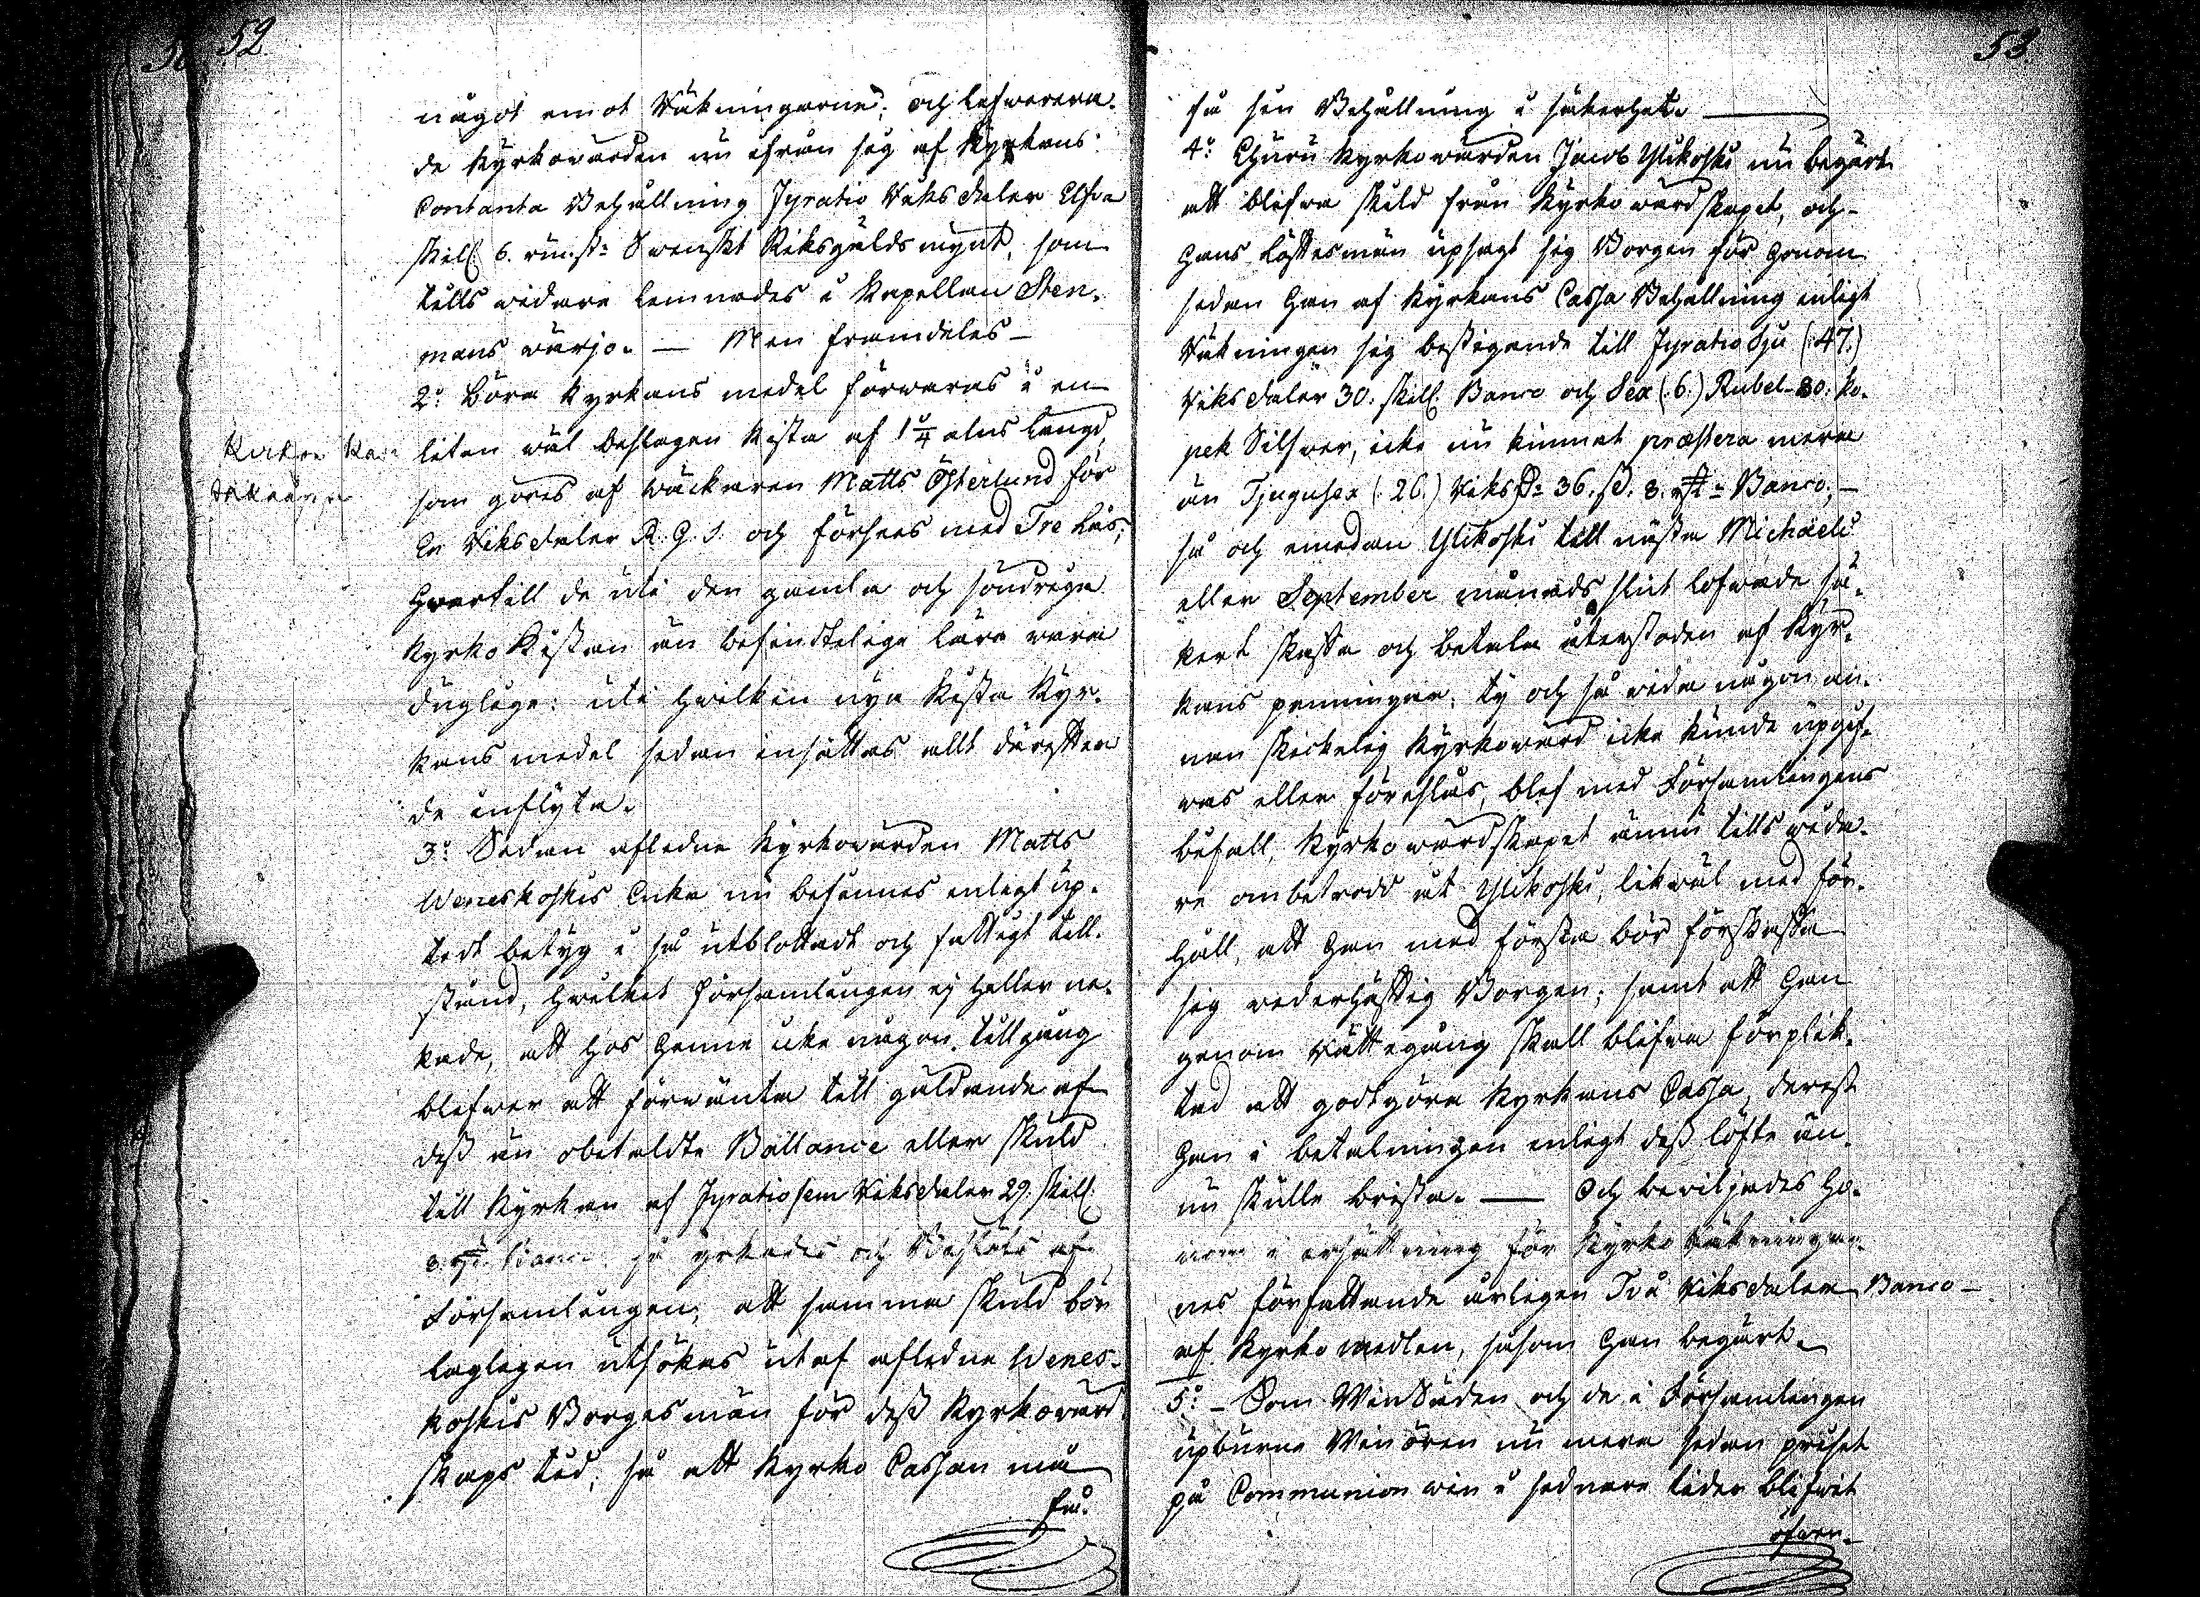 52
något emot Räkningarne; och lefwerera-
de Kyrkowärden nu ifrån sig af Kyrkans
Contanta Behållning Fyratio Riksdaler Elfva
skill. 6. rundst. Svenskt Riksgälds mynt, som
tills widare lemnades i Kapellan Sten-
mans wärjo. — Men framdeles —
2:o Böra Kyrkans medel förwaras i en
liten wäl beslagen Kista af 1 1/4 alns längd,
som göres af Wäckaren Matts Österlund för
En Riksdaler R. G. S. och förses med Tre Lås,
hwartill de uti den gamla och söndriga
Kyrko Kistan än befindtelige lära wara
duglige: uti hwilken nya Kista Kyr-
kans medel sedan insättas allt därefter
de inflyta.
3:o Sedan afledne Kyrkowärden Matts
Weneskoskis Enka nu befunnes enligt up-
tedt betyg i så utblottadt och fattigt till-
stånd, hwilket Församlingen ej heller ne-
kade, att hos henne icke någon tillgång
blefwer att förwänta till guldande af
dess än obetaldte Ballance eller skuld
till Kyrkan af Fyratiofem Riksdaler 29. skill.
8. rst. Banco, så yrkades och Beslöts af
Församlingen, att samma skuld bör
lagligen utsökas utaf afledne Wenes-
koskis Borgesmän för dess Kyrkowärd-
skaps tid; så att Kyrko Cassan må
få
Kirkon Ra-
53.
få sin Behållning i säkerhet.
4:o Ehuru Kyrkowärden Jacob Ylikoski nu begärt
att blifwa skild från Kyrkowärdskapet, och
hans Löftesmän upsagt sig Borgen för honom
sedan han af Kyrkans Cassa Behållning enligt
Räkningen sig bestigande till Fyratio Sju (47.)
Riksdaler 30. skill. Banco och Sex (6.) Rubel 80. Ko-
pek Silfwer, icke nu kunnat præstera mera
än Tjugusex (26.) Riksd:r 36. sk. 8. rst. Banco; —
så och emedan Ylikoski till nästa Michaeli
eller September månads slut lofwade så-
kert skaffa och betala återstoden af Kyr-
kans penningar; ty och så wida någon an-
nan skickelig Kyrkowärd icke kunde upgif-
was eller föreslås, blef med Församlingens
bifall, Kyrkowärdskapet ännu tills wida-
re ombetrodd åt Ylikoski, likwäl med för-
håll, att han med första bör förskaffa
sig wederhäftig Borgen; samt att han
genom Rättegång skall blifwa förplik-
tad att godtgöra Kyrkans Cassa, derest
han i betalningen enligt dess löfte än-
nu skulle brista. — Och bewiljades ho-
nom i ersättning för Kyrko Räkningar-
nes författande årligen Två Riksdaler Banco —
af Kyrko medlen, såsom han begärt.
5:o — Som WinSäden och de i Församlingen
upburne Win ören nu mera sedan priset
på Communion win i sednare tider blifwit
öfwer-